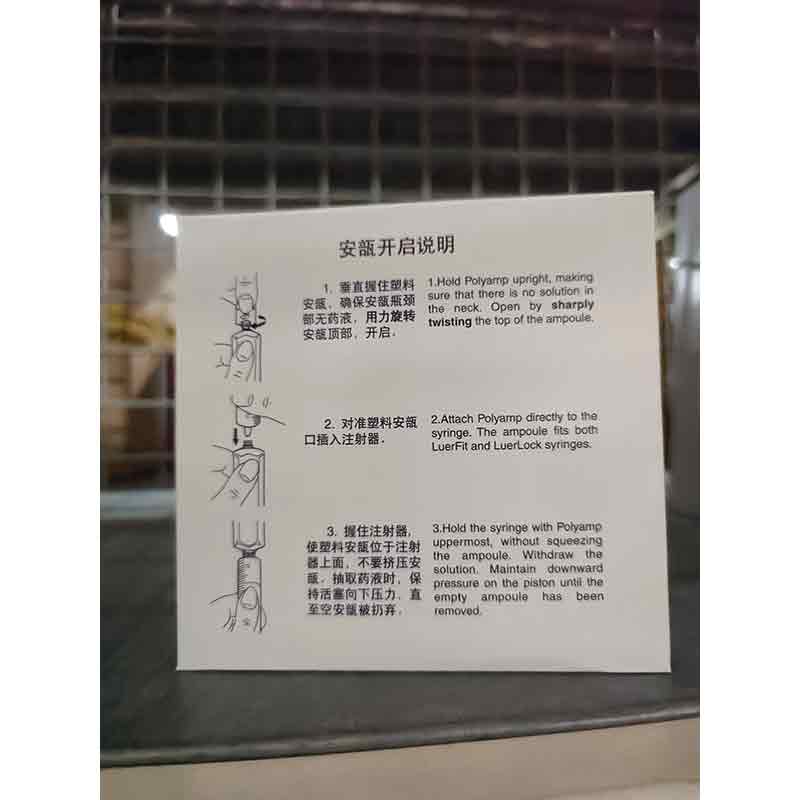 安瓿开启说明
1. 垂直握住塑料
安瓿、确保安瓿瓶颈
部无药液，用力旋转
安瓿顶部，开启.
1.Hold Polyamp upright, making
sure that there is no solution in
the neck. Open by sharply
twisting the top of the ampoule.
2. 对准塑料安瓿
口插入注射器.
2.Attach Polyamp directly to the
syringe. The ampoule fits both
LuerFit and LuerLock syringes.
3. 握住注射器,
使塑料安瓿位于注射
器上面，不要挤压安
瓿. 抽取药液时，保
持活塞向下压力，直
至空安瓿被扔弃.
3.Hold the syringe with Polyamp
uppermost, without squeezing
the ampoule. Withdraw the
solution. Maintain downward
pressure on the piston until the
empty ampoule has been
removed.